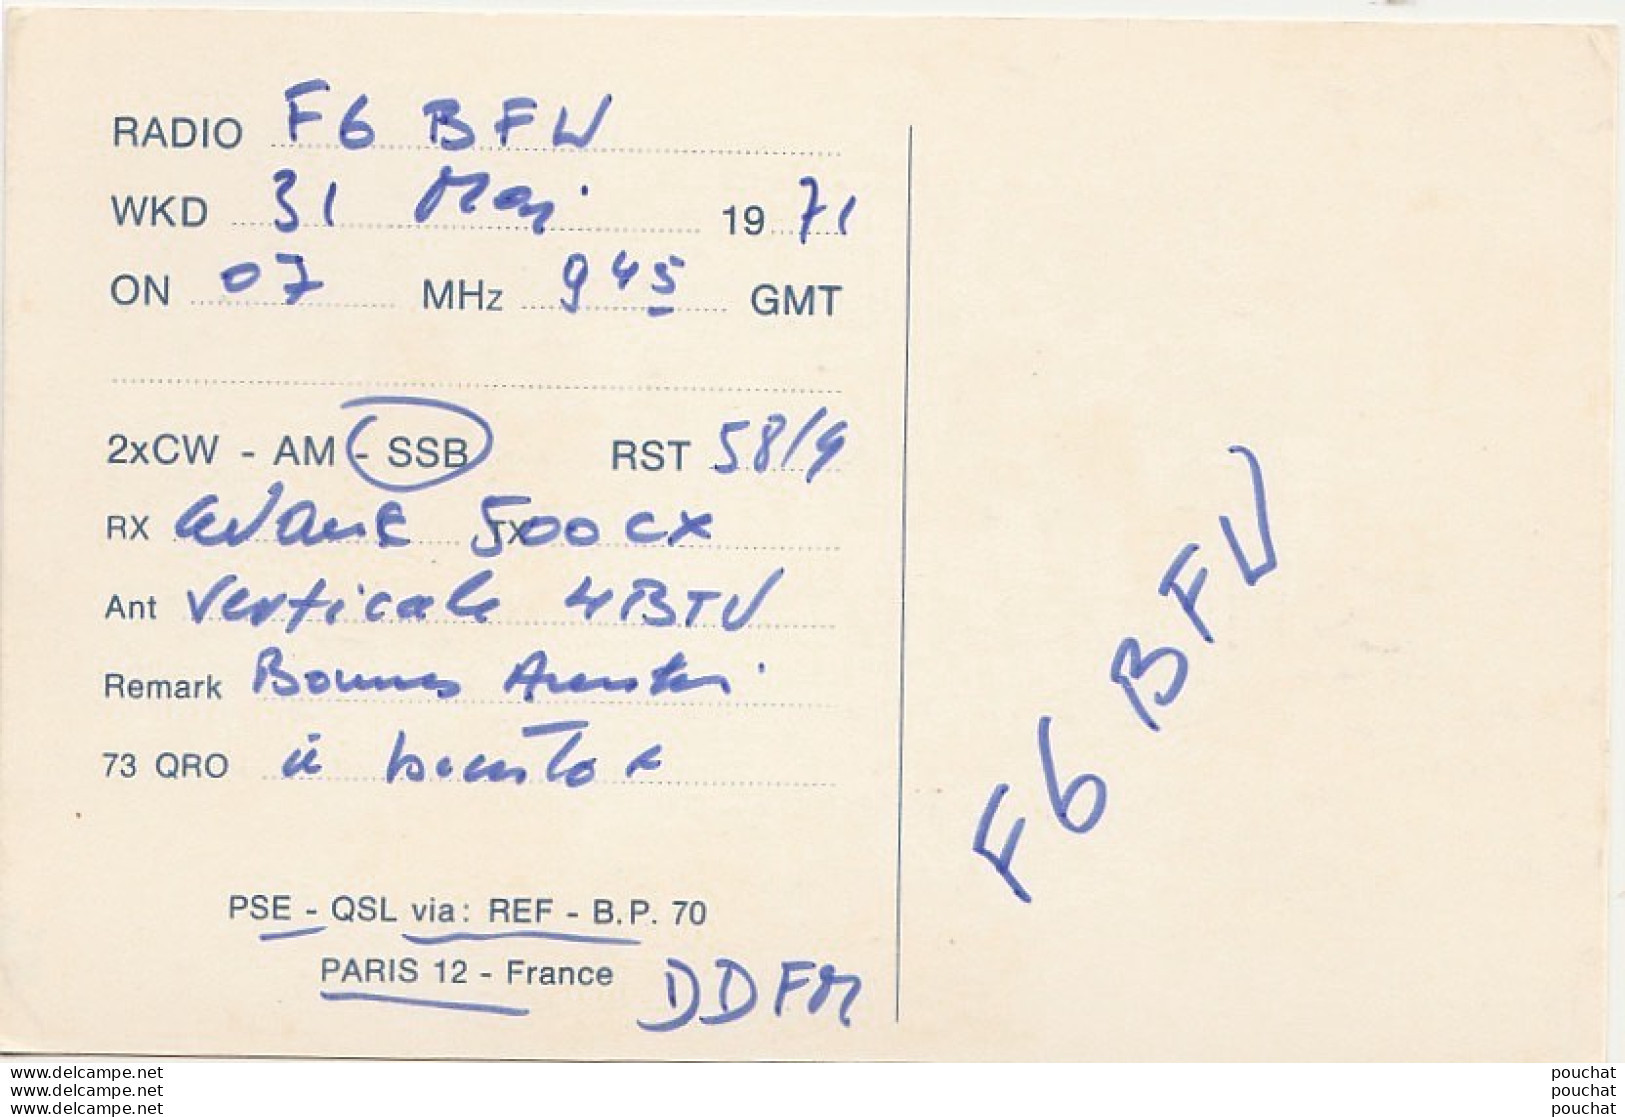 RADIO F6 BFW
WKD 31 Mai 1971
ON 07 MHz 945 GMT
2xCW - AM - SSB RST 58/9
RX TX 500 CX
Ant Verticale 4BTV
Remark Bonnes
73 QRO à bientot
PSE - QSL via: REF - B.P. 70
PARIS 12 - France DDFM
F6 BFW
www.delcampe.net
www.delcampe.net
www.delcampe.net
pouchat
pouchat
pouchat